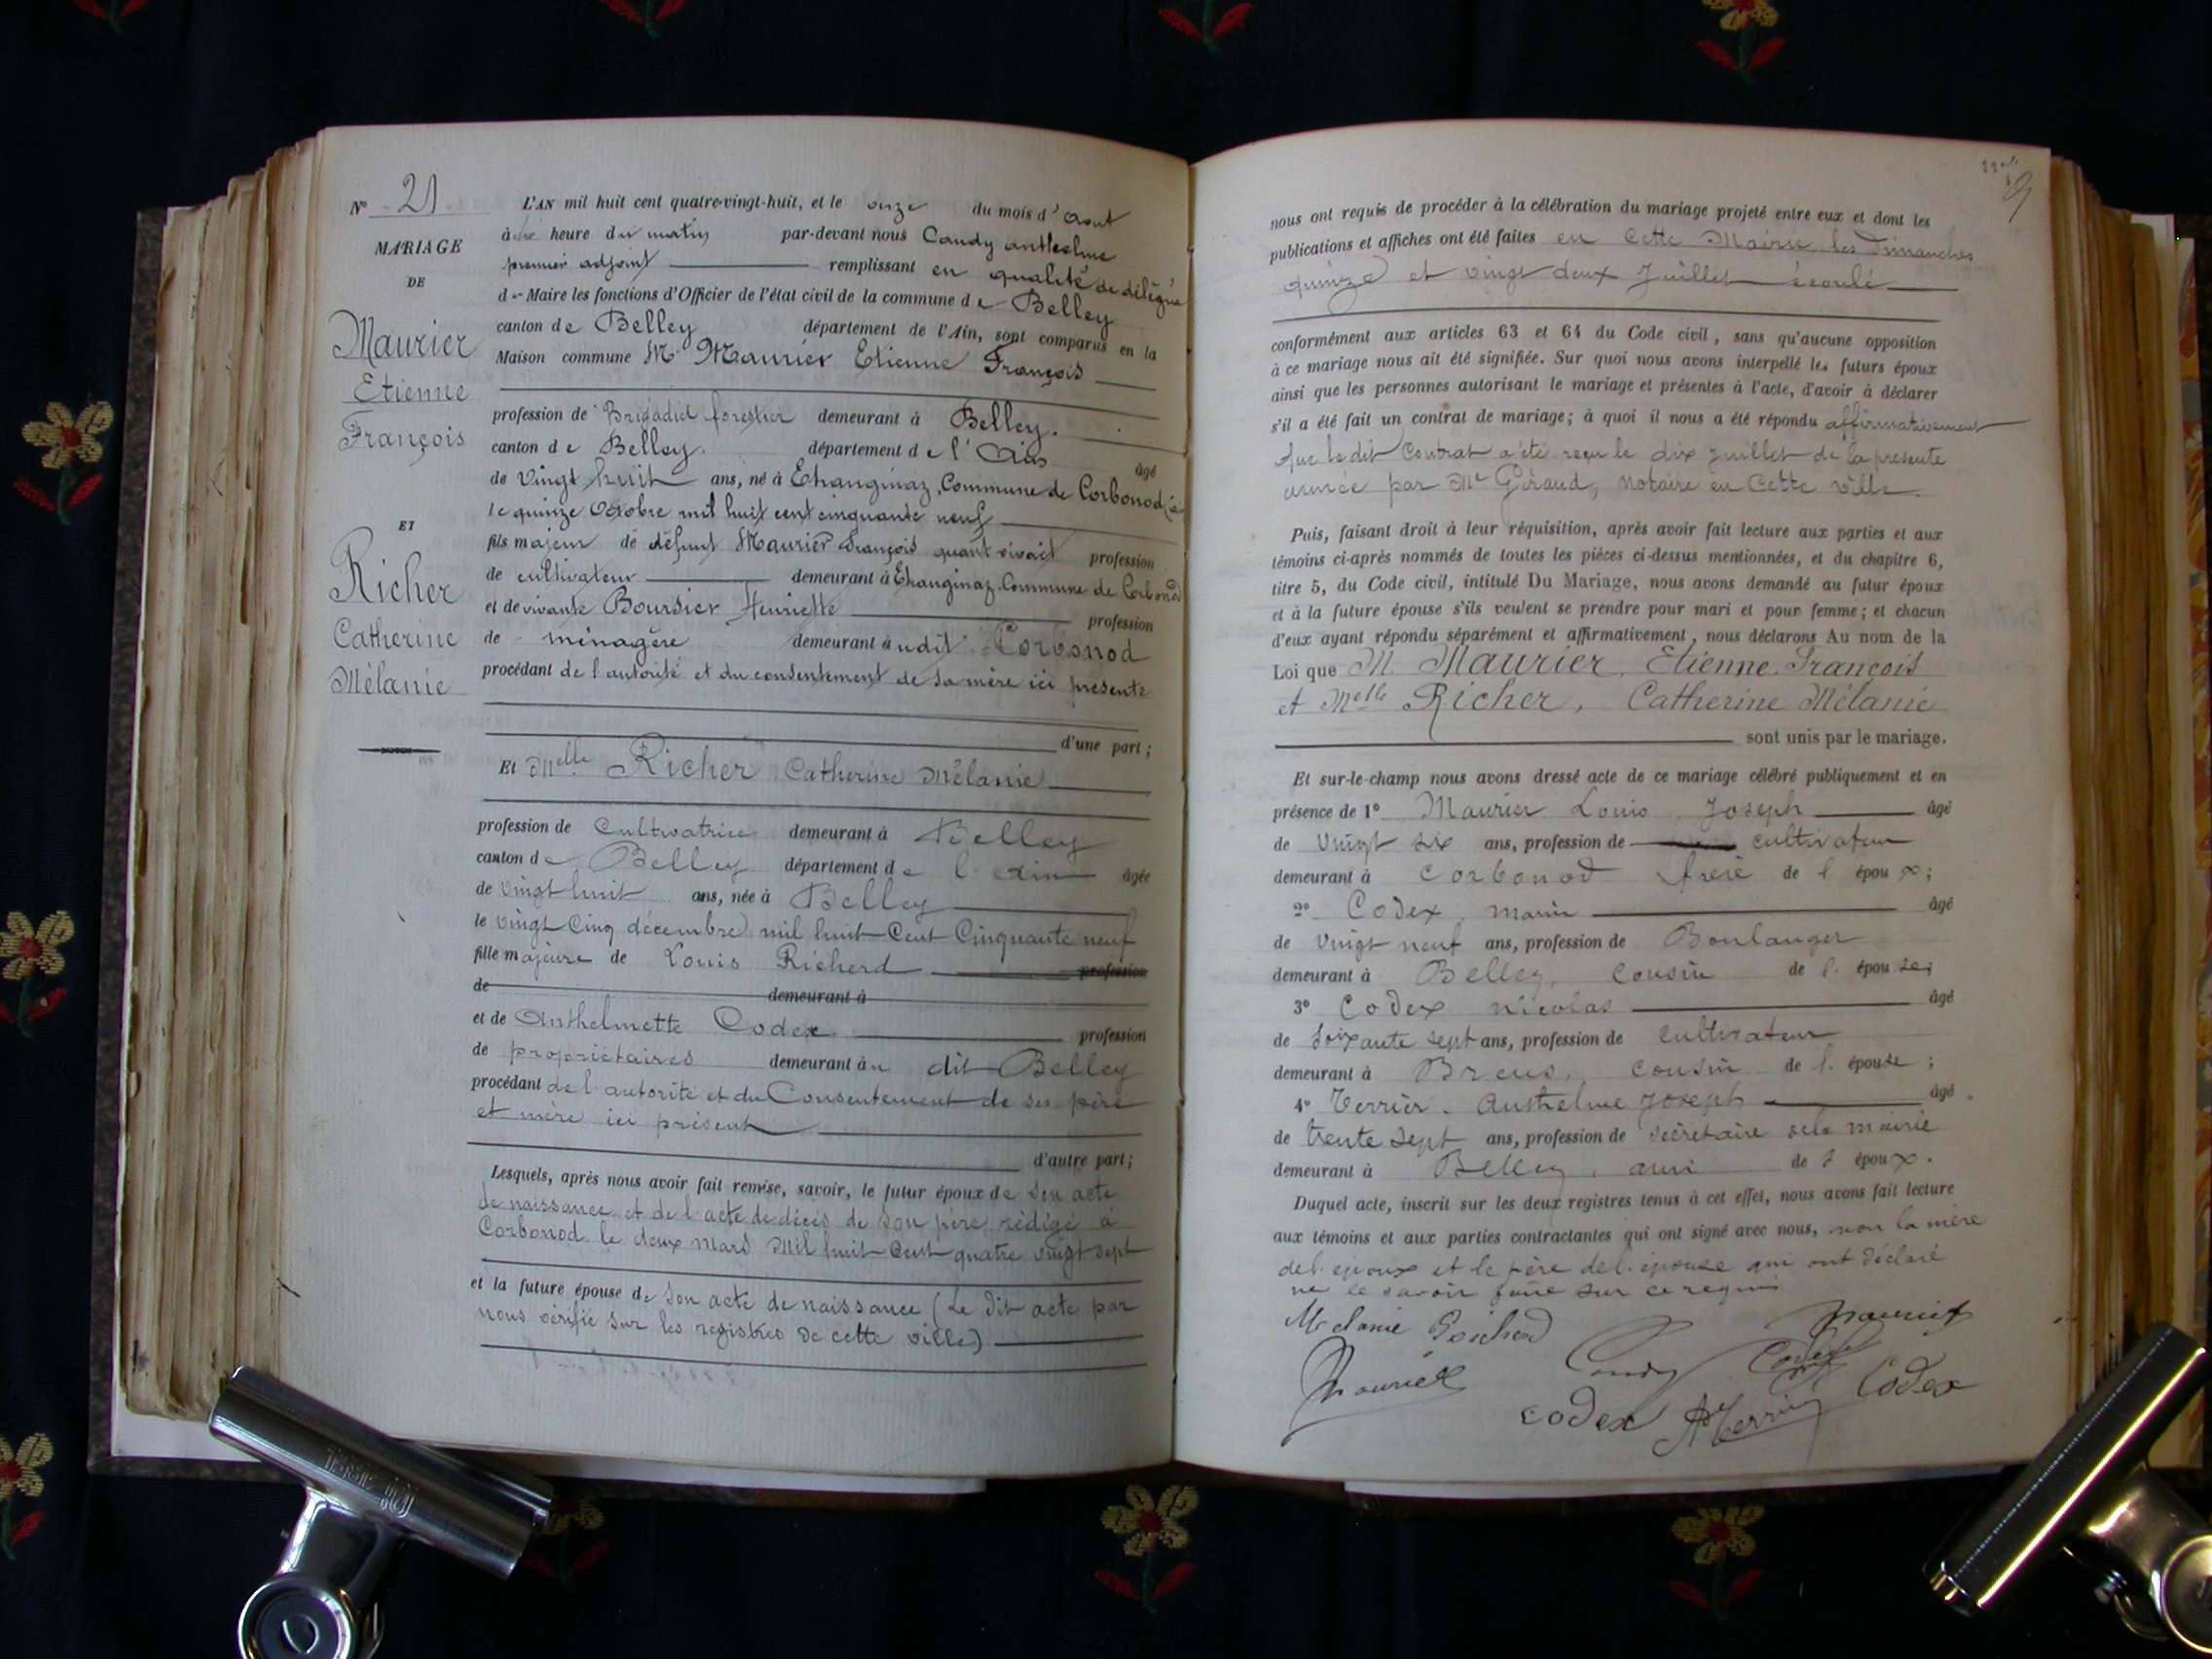 N° 21
MARIAGE
DE
Maurier
Etienne
François
ET
Richer
Catherine
Mélanie
L'AN mil huit cent quatre-vingt-huit, et le onze du mois d'aout
à heure du matin par-devant nous Candy anthelme
premier adjoint remplissant en qualité de délégué
de Maire les fonctions d'Officier de l'état civil de la commune de Belley
canton de Belley département de l'Ain, sont comparus en la
Maison commune Mr Maurier Etienne François
profession de Brigadier forestier demeurant à Belley.
canton de Belley. département de l'Ain âgé
de Vingt huit ans, né à Etranginaz, Commune de Corbonod
le quinze Octobre mil huit cent cinquante neuf
fils majeur de défunt Maurier François quant vivait profession
de cultivateur demeurant à Etranginaz, Commune de Corbonod
et de vivante Boursier Henriette profession
de ménagère demeurant à udit Corbonod
procédant de l'autorité et du consentement de sa mère ici présente
d'une part;
Et Melle Richer Catherine Mélanie
profession de Cultivatrice demeurant à Belley
canton de Belley département de l'ain âgée
de vingt huit ans, née à Belley
le vingt Cinq décembre mil huit Cent Cinquante neuf
fille majeure de Louis Richerd profession
de demeurant à
et de Anthelmette Codex profession
de propriétaires demeurant à u dit Belley
procédant de l'autorité et du Consentement de ses père
et mère ici présent
d'autre part;
Lesquels, après nous avoir fait remise, savoir, le futur époux de son acte
de naissance et de l'acte de décès de son père rédigé à
Corbonod le deux Mars Mil huit Cent quatre vingt sept
et la future épouse de son acte de naissance (Le dit acte par
nous vérifié sur les registres de cette ville)
9
nous ont requis de procéder à la célébration du mariage projeté entre eux et dont les
publications et affiches ont été faites en cette Mairie les Dimanches
quinze et vingt deux Juillet écoulé
conformément aux articles 63 et 64 du Code civil, sans qu'aucune opposition
à ce mariage nous ait été signifiée. Sur quoi nous avons interpellé les futurs époux
ainsi que les personnes autorisant le mariage et présentes à l'acte, d'avoir à déclarer
s'il a été fait un contrat de mariage; à quoi il nous a été répondu affirmativement
que le dit Contrat a été reçu le dix juillet de la présente
année par Me Giraud, notaire en Cette ville.
Puis, faisant droit à leur réquisition, après avoir fait lecture aux parties et aux
témoins ci-après nommés de toutes les pièces ci-dessus mentionnées, et du chapitre 6,
titre 5, du Code civil, intitulé Du Mariage, nous avons demandé au futur époux
et à la future épouse s'ils veulent se prendre pour mari et pour femme; et chacun
d'eux ayant répondu séparément et affirmativement, nous déclarons Au nom de la
Loi que M. Maurier, Etienne François
et Melle Richer, Catherine Mélanie
sont unis par le mariage.
Et sur-le-champ nous avons dressé acte de ce mariage célébré publiquement et en
présence de 1° Maurier Louis Joseph âgé
de Vingt six ans, profession de cultivateur
demeurant à Corbonod frère de l'époux;
2° Codex, marin âgé
de vingt neuf ans, profession de Boulanger
demeurant à Belley, cousin de l'épouse;
3° Codex nicolas âgé
de soixante sept ans, profession de cultivateur
demeurant à Brens, cousin de l'épouse;
4° Terrier, Anthelme Joseph âgé
de trente sept ans, profession de secrétaire de la mairie
demeurant à Belley, ami de l'époux.
Duquel acte, inscrit sur les deux registres tenus à cet effet, nous avons fait lecture
aux témoins et aux parties contractantes qui ont signé avec nous, non la mère
de l'époux et le père de l'épouse qui ont déclaré
ne le savoir faire sur ce requis
Melanie Richerd Maurier
Maurier Candy Codex Codex
codex ATerrier